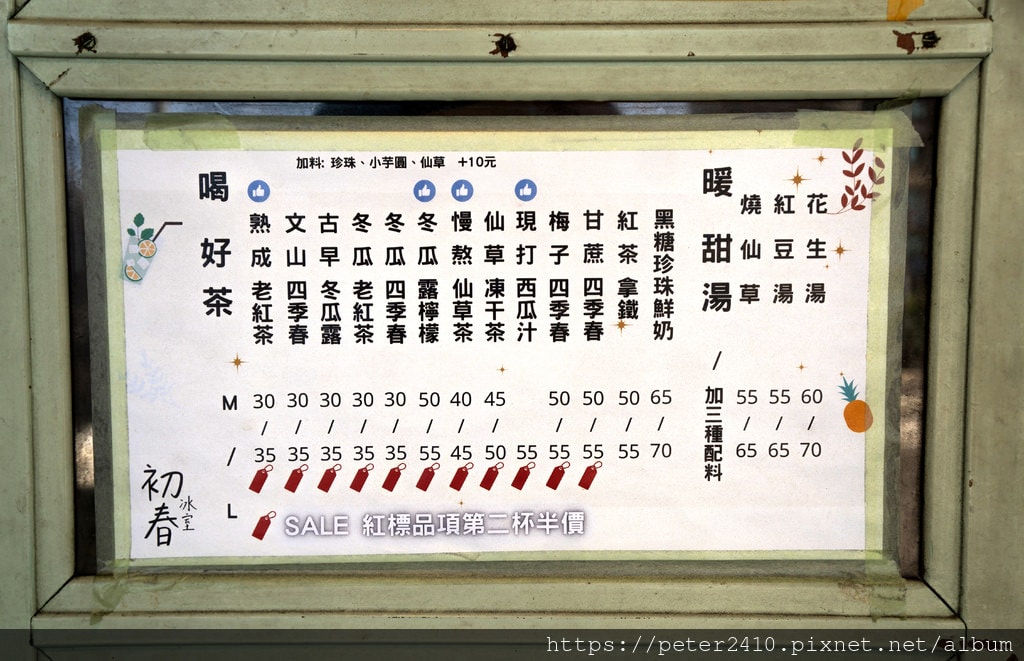 加料: 珍珠、小芋圓、仙草 +10元
喝好茶
熟成老紅茶
文山四季春
古早冬瓜露
冬瓜老紅茶
冬瓜四季春
冬瓜露檸檬
慢熬仙草茶
仙草凍干茶
現打西瓜汁
梅子四季春
甘蔗四季春
紅茶拿鐵
黑糖珍珠鮮奶
暖甜湯/加三種配料
燒仙草
紅豆湯
花生湯
M 30 30 30 30 30 50 40 45 50 50 50 65 55 55 60
/ / / / / / / / / / / / / / / /
35 35 35 35 35 55 45 50 55 55 55 55 70 65 65 70
L
SALE 紅標品項第二杯半價
初春冰室
https://peter2410.pixnet.net/album